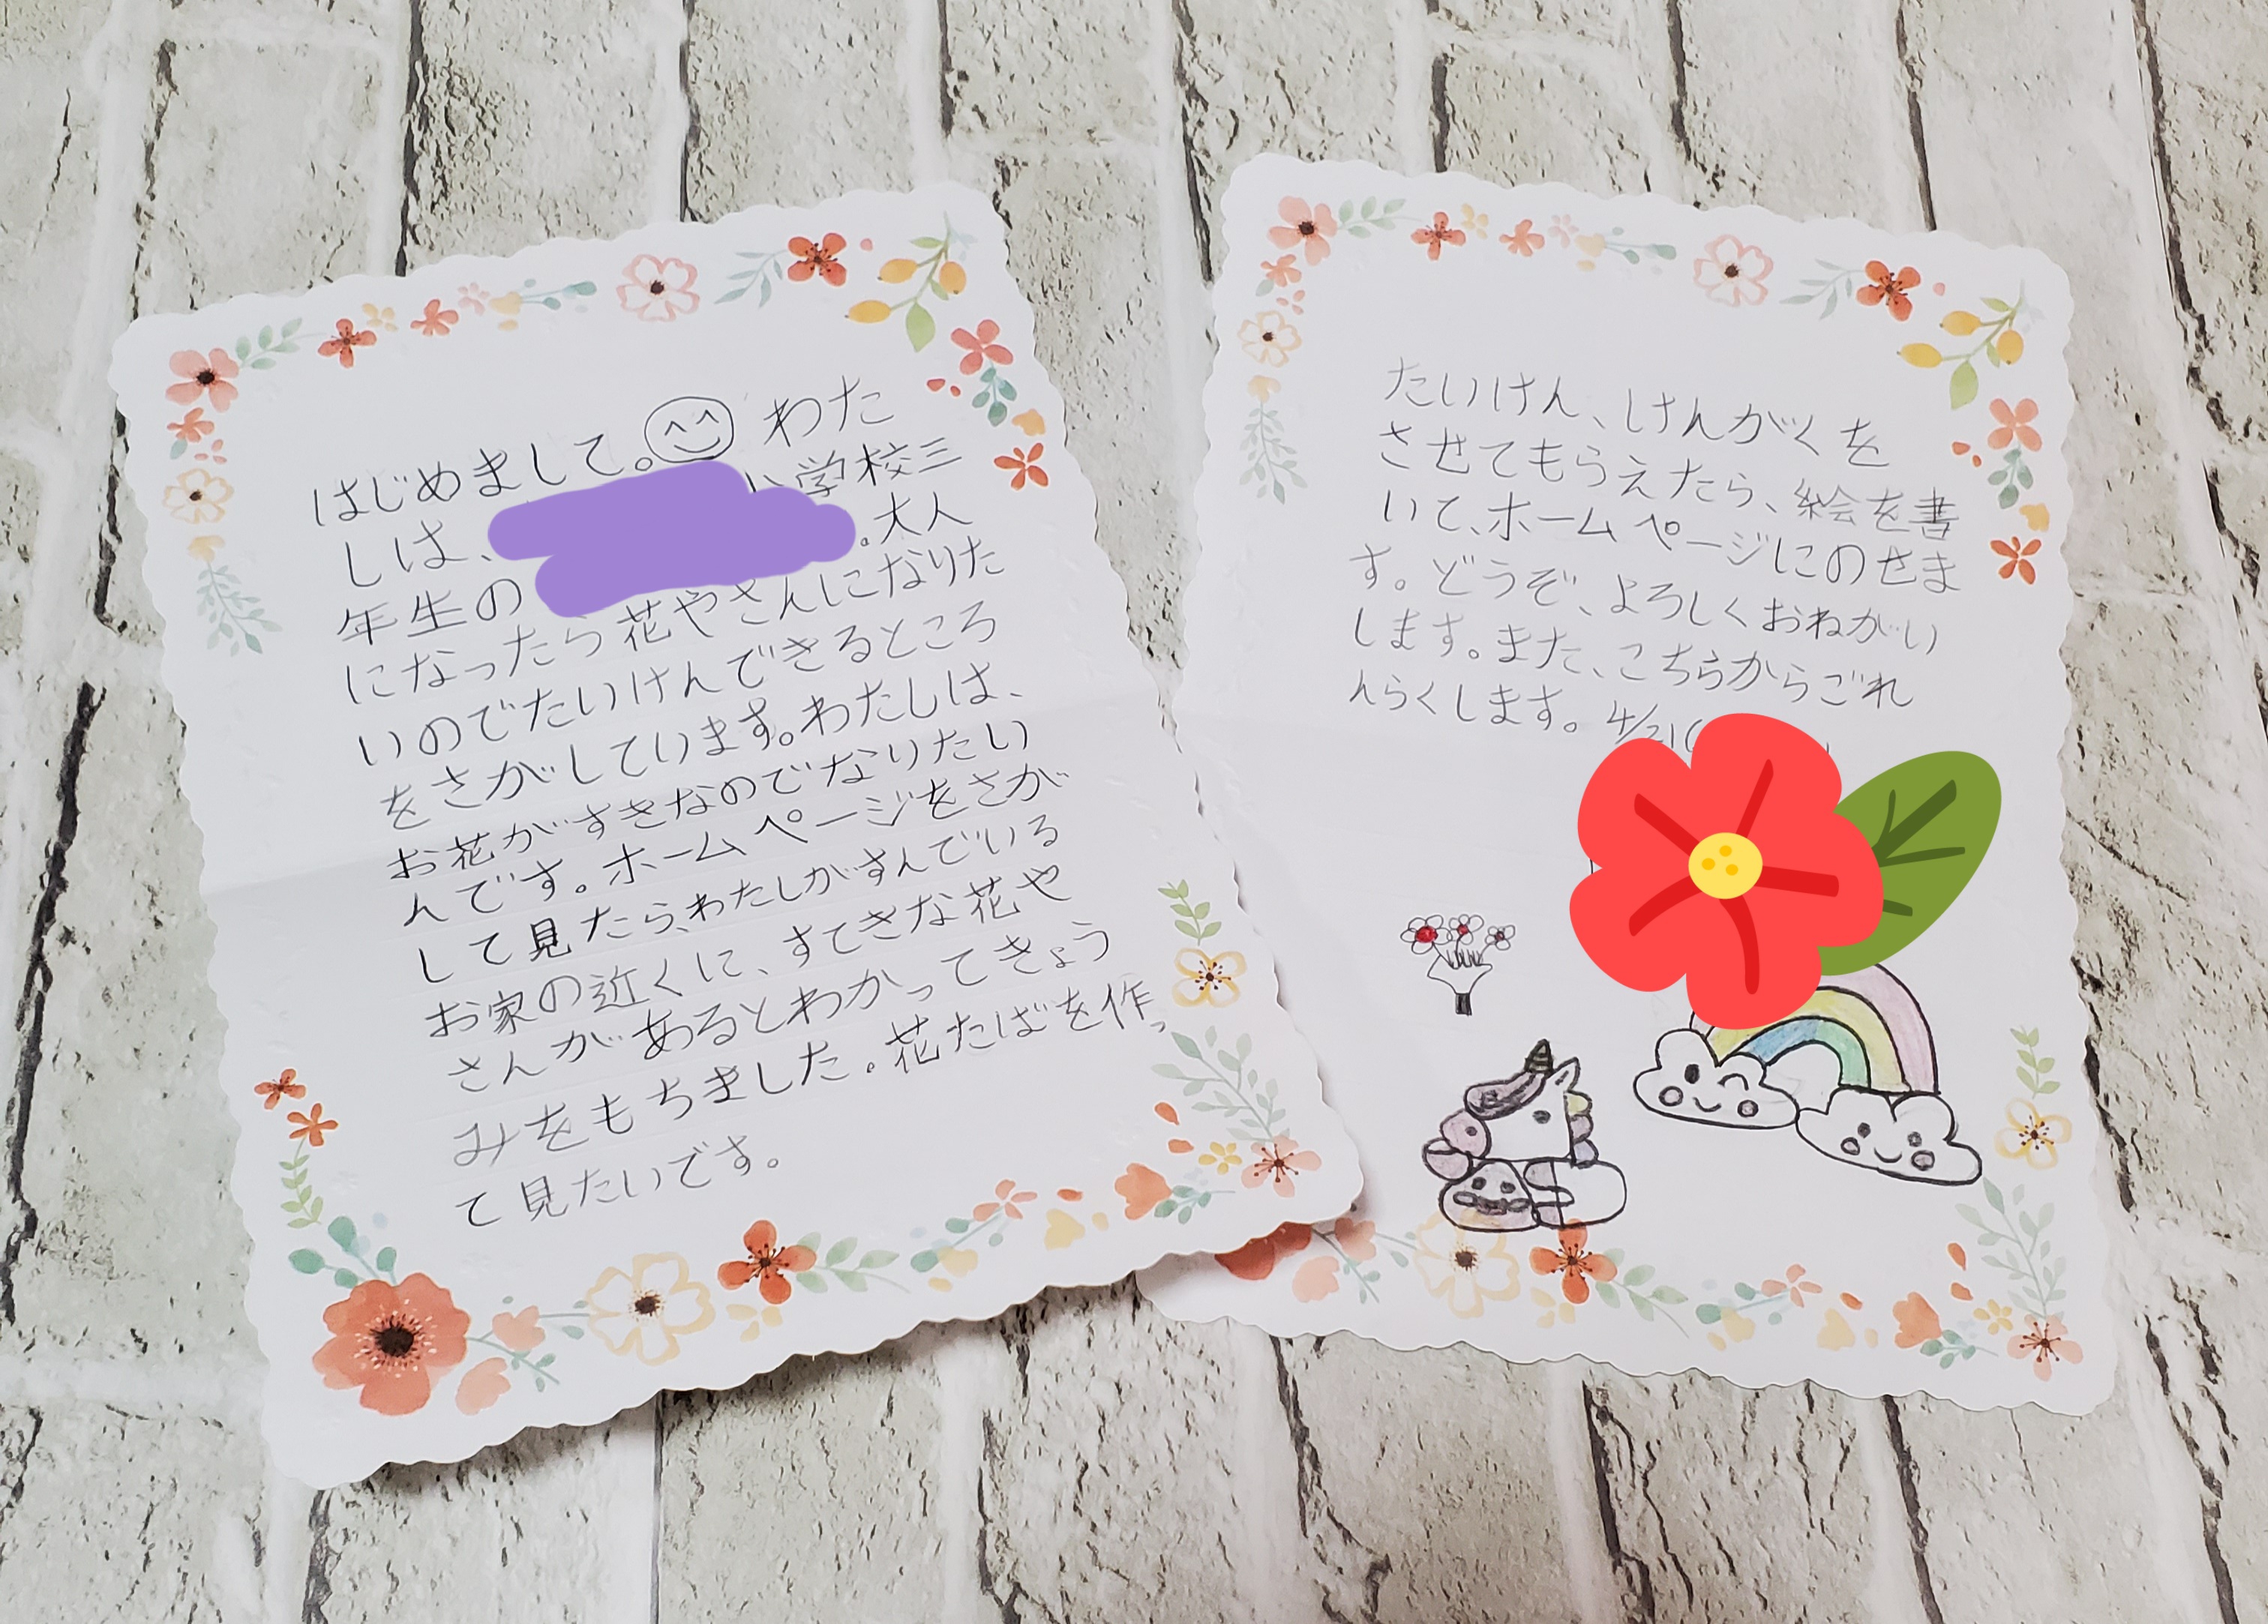 はじめまして。わた
しは、小学校三
年生の。大人
になったら花やさんになりた
いのでたいけんできるところ
をさがしています。わたしは、
お花がすきなのでなりたい
んです。ホームページをさが
して見たら、わたしがすんでいる
お家の近くに、すてきな花や
さんがあるとわかってきょう
みをもちました。花たばを作っ
て見たいです。
たいけん、けんがくを
させてもらえたら、絵を書
いて、ホームページにのせま
す。どうぞ、よろしくおねがい
します。また、こちらからごれ
んらくします。4/21(